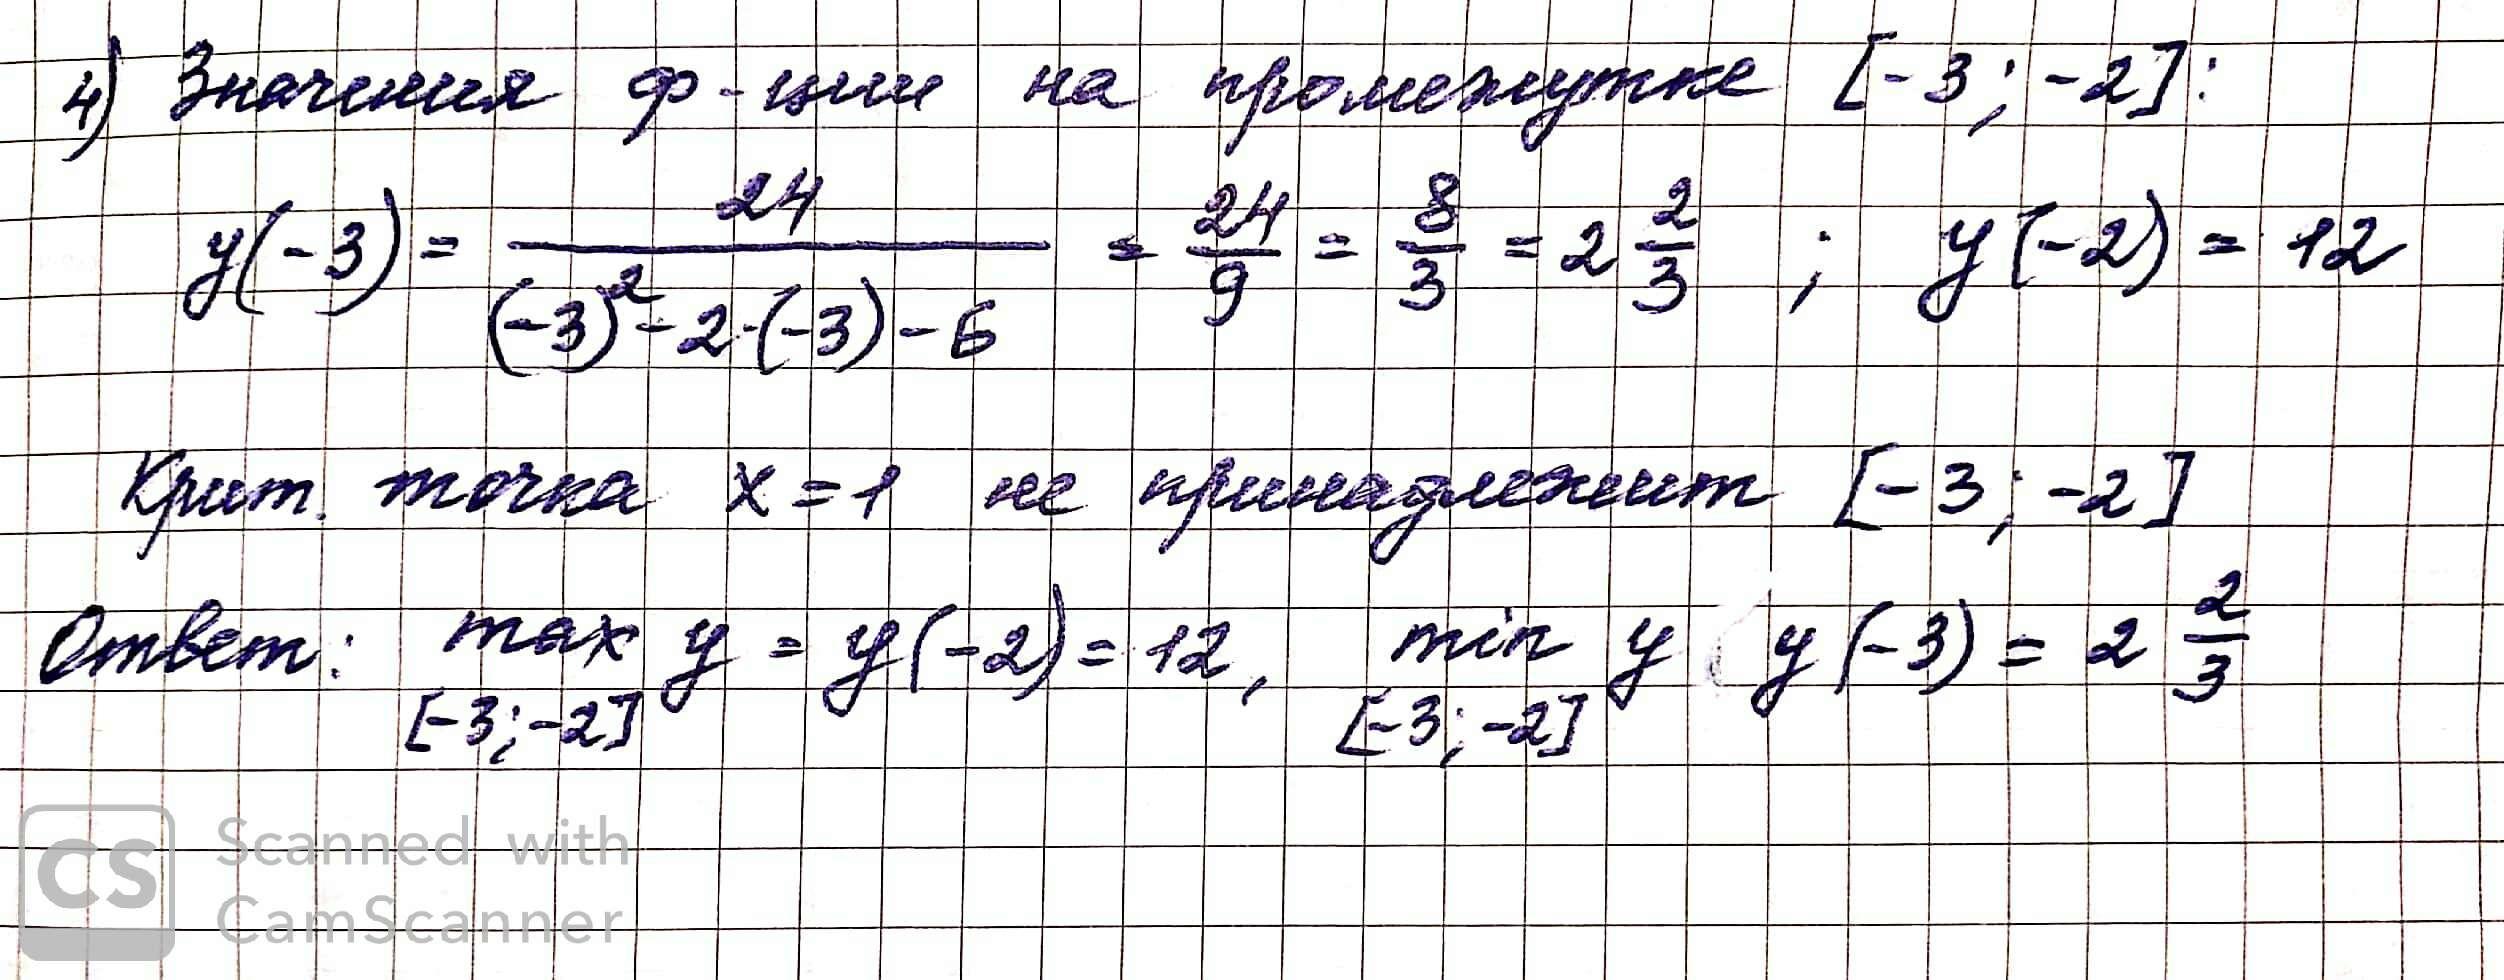 4) Значения ф-ции на промежутке [-3; -2]:
y(-3) = 24/((-3)² - 2·(-3) - 6) = 24/9 = 8/3 = 2 2/3 ; y(-2) = 12
Крит. точка x = 1 не принадлежит [-3; -2]
Ответ: max y = y(-2) = 12, min y y(-3) = 2 2/3
[-3; -2] [-3; -2]
CS Scanned with
CamScanner